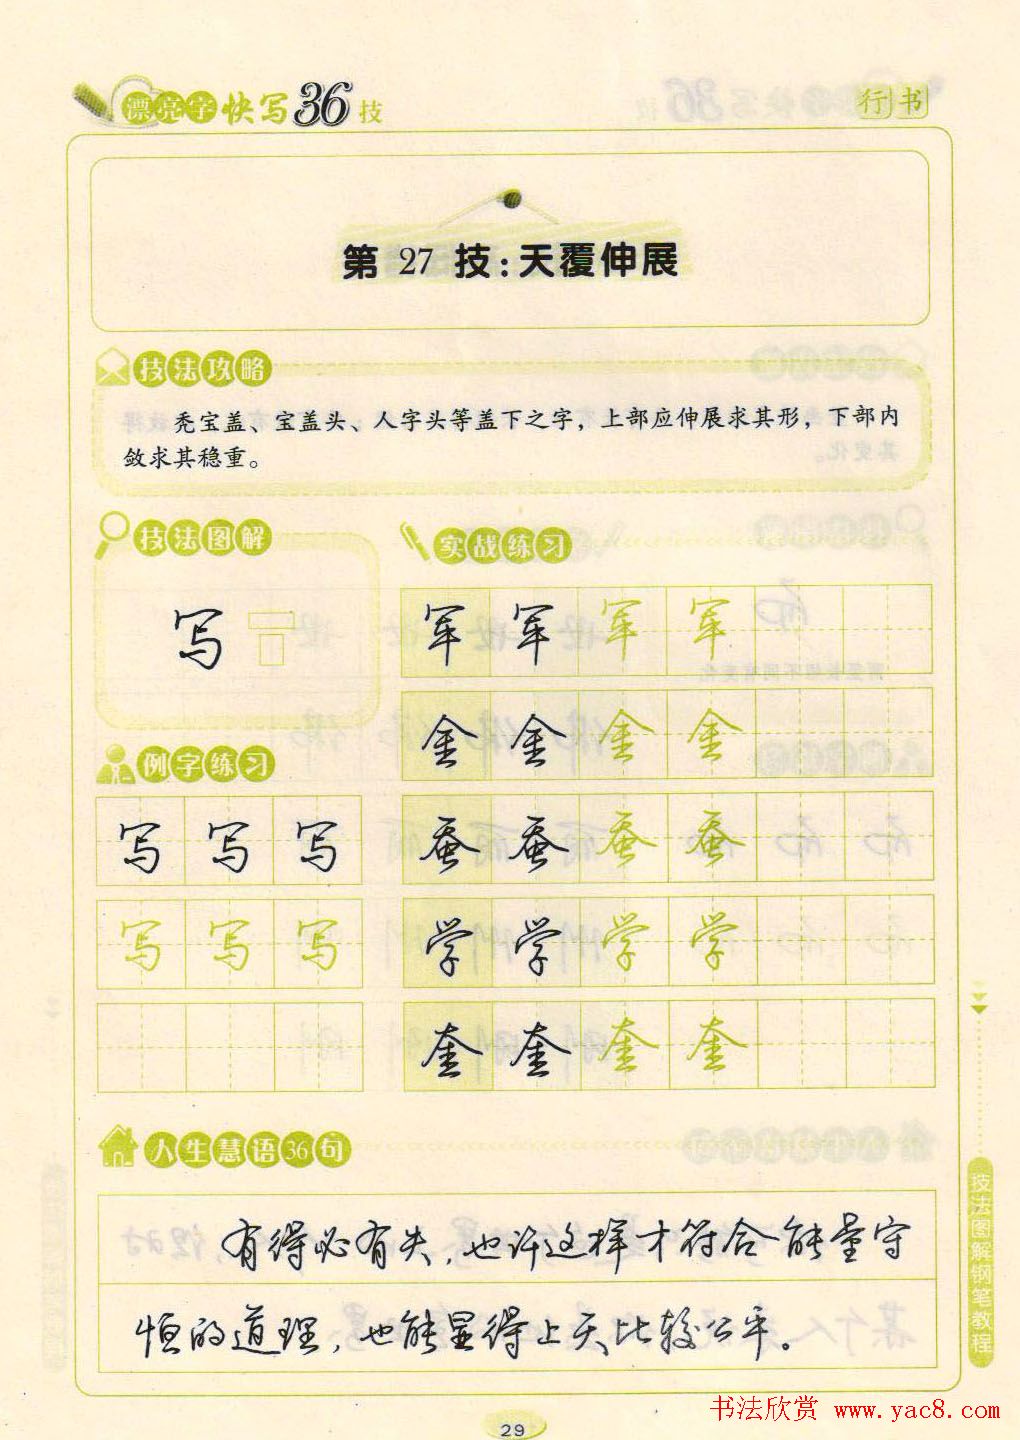 漂亮字快写36技
行书
第 27 技:天覆伸展
技法攻略
秃宝盖、宝盖头、人字头等盖下之字，上部应伸展求其形，下部内
敛求其稳重。
技法图解
写
实战练习
军 军 军 军
金 金 金 金
例字练习
写 写 写
蚕 蚕 蚕 蚕
写 写 写
学 学 学 学
奎 奎 奎 奎
人生慧语36句
有得必有失，也许这样才符合能量守
恒的道理，也能显得上天比较公平。
技法图解钢笔教程
29
书法欣赏 www.yac8.com